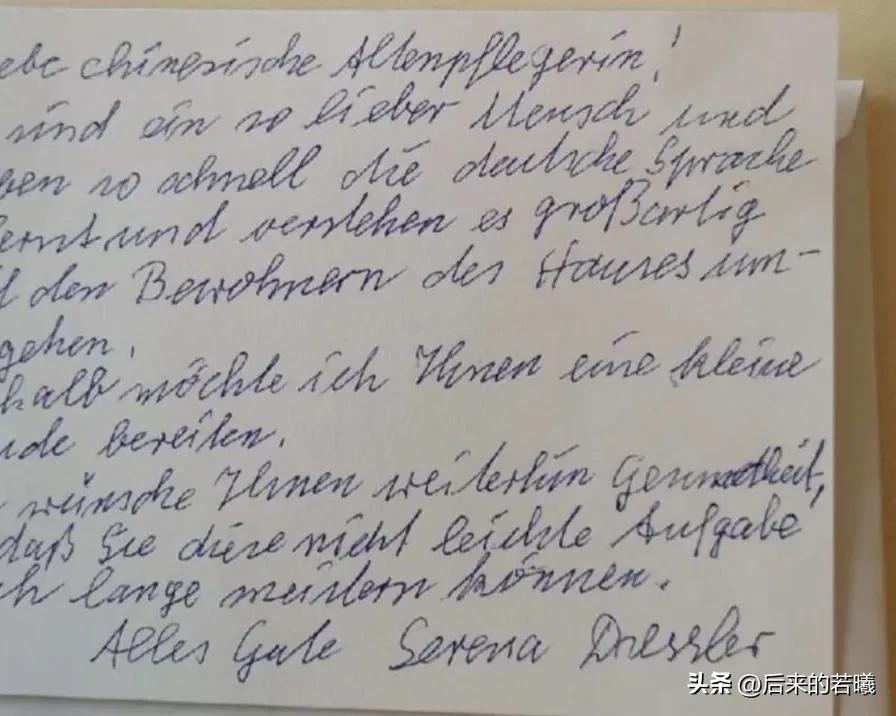 ebe chinesische Altenpflegerin!
sind ein so lieber Mensch und
ben so schnell die deutsche Sprache
lernt und verstehen es großartig
t den Bewohnern des Hauses um-
gehen.
halb möchte ich Ihnen eine kleine
ude bereiten.
wünsche Ihnen weiterhin Gesundheit,
daß Sie diese nicht leichte Aufgabe
ch lange meistern können.
Alles Gute Serena Dressler
头条 @后来的若曦